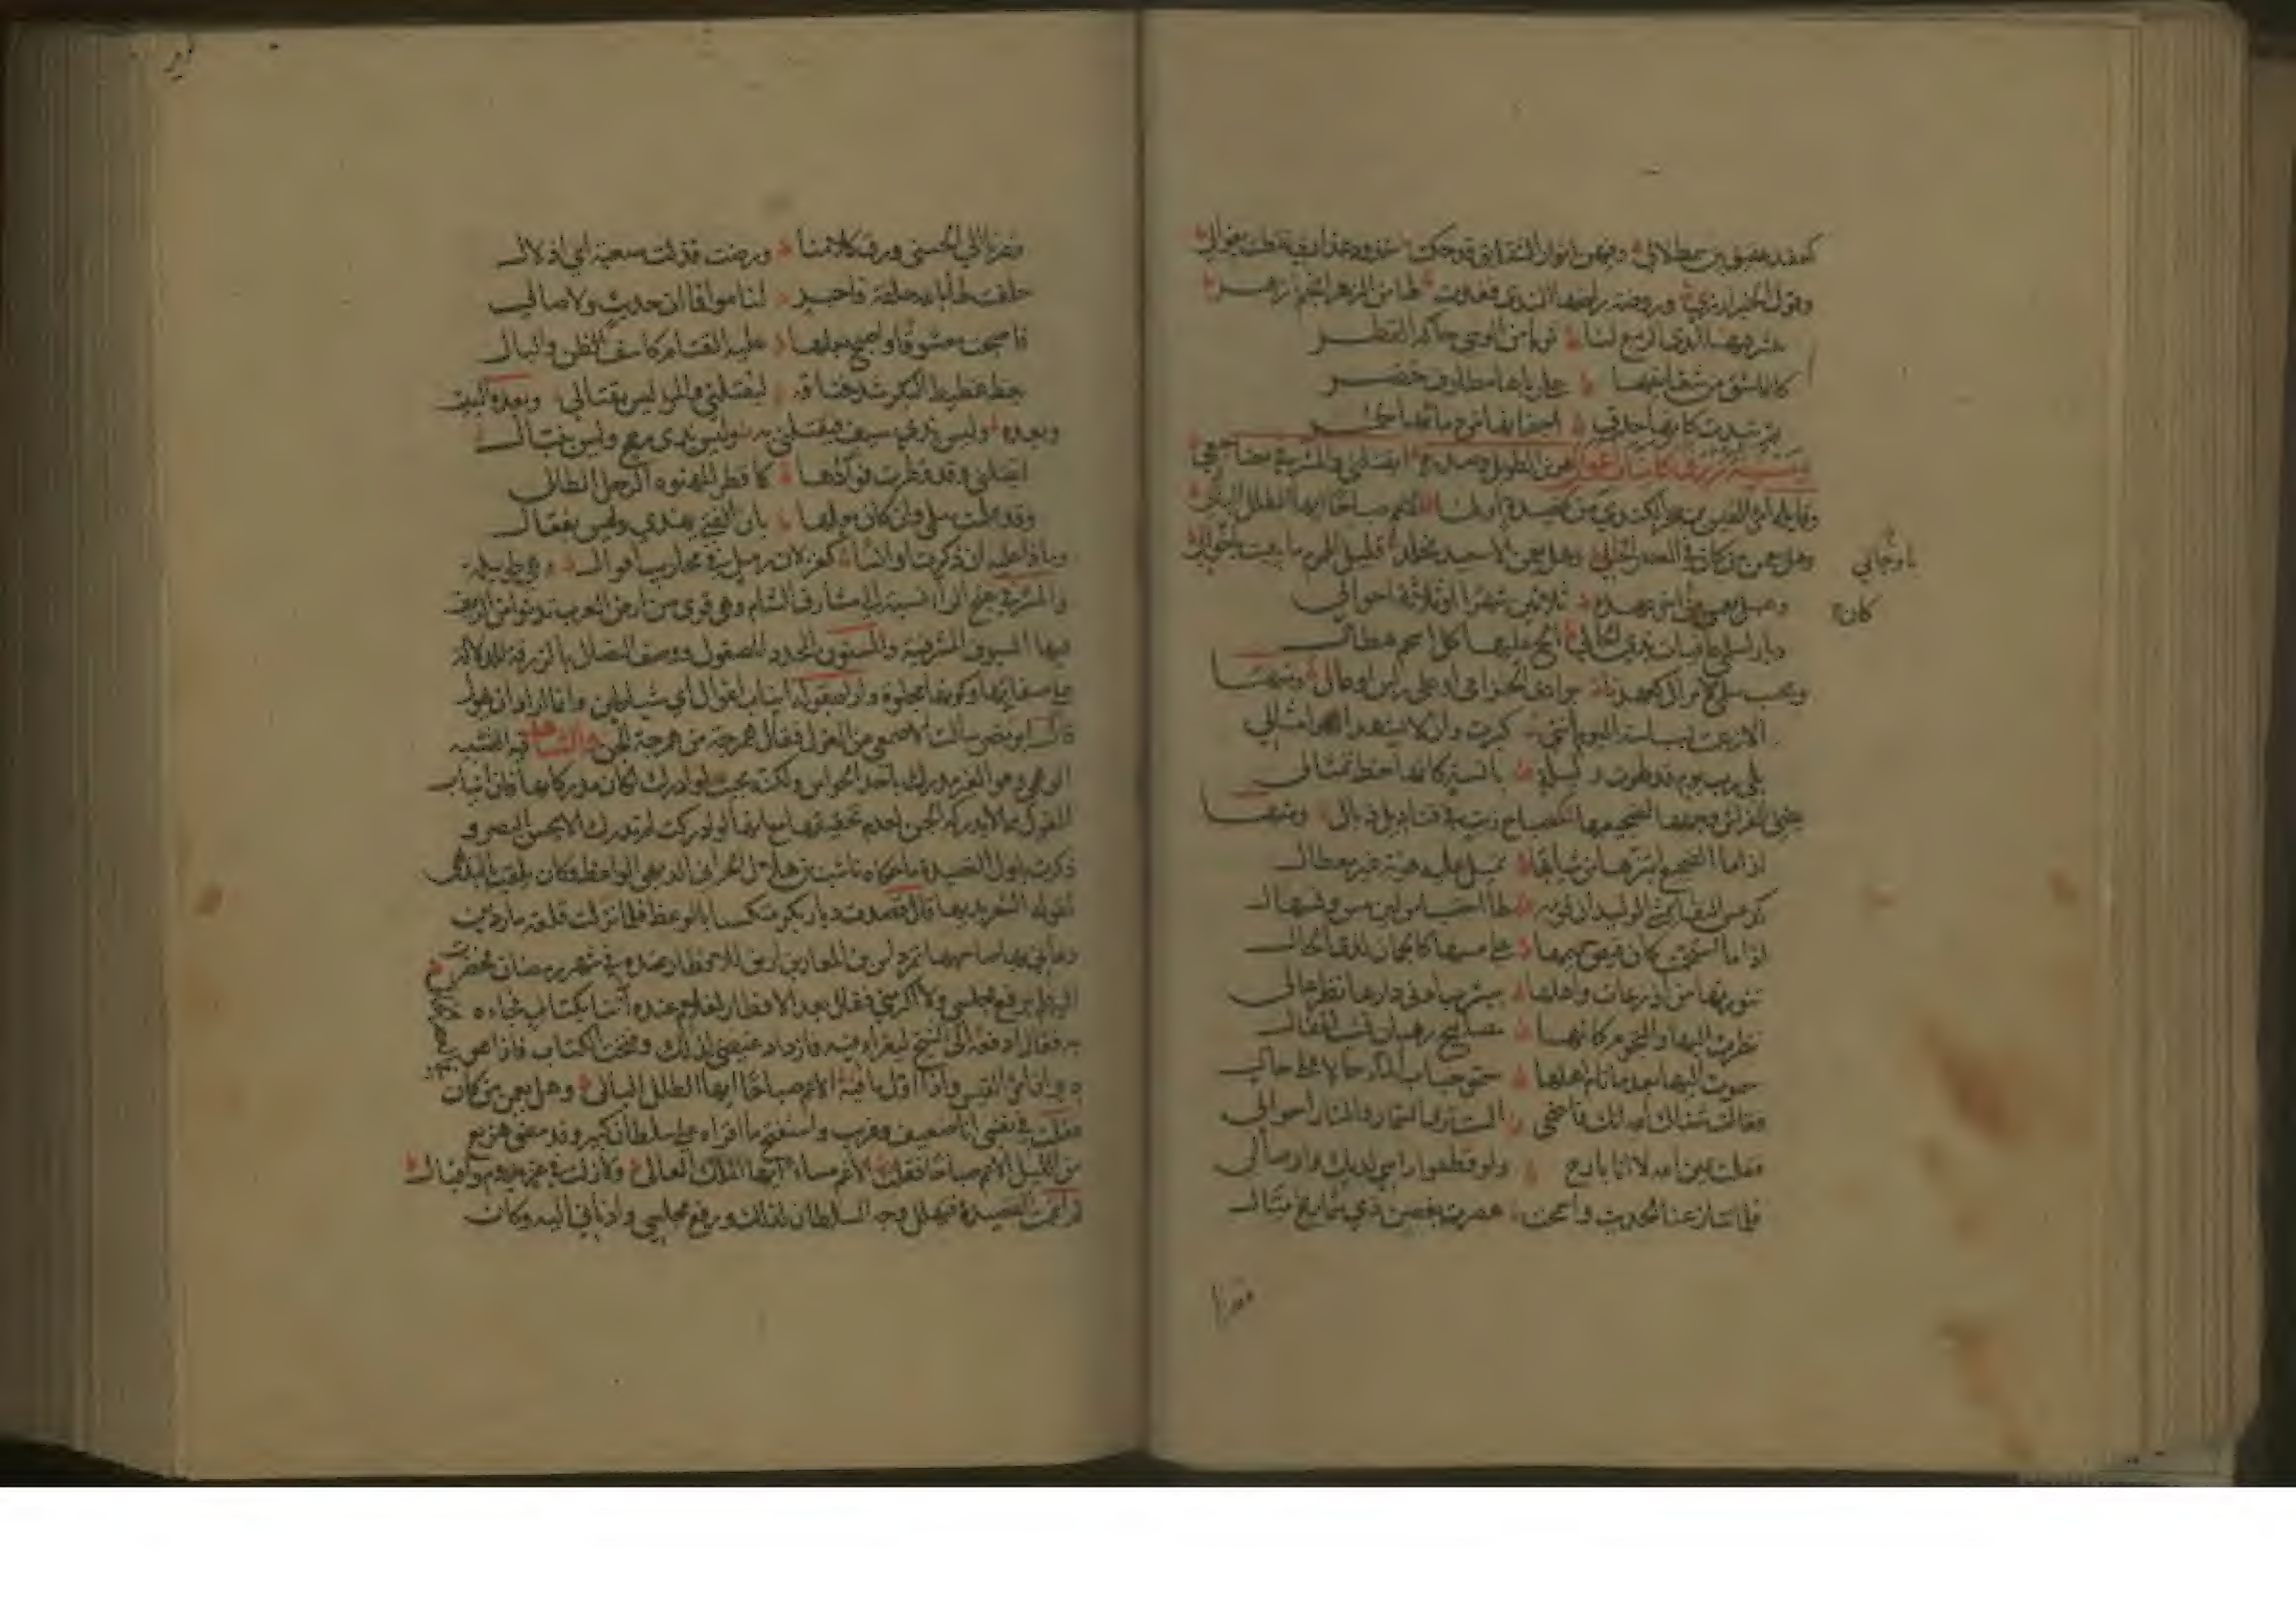 وقول الخبزارزي وروضة راضها الندى فغدت لها من الزهر أنجم زهر
ينشر فيها أيدي الربيع لنا ثوبا من الوشي حاكه القطر
كأنما شق من شقائقها على رباها مطارف خضر
ثم تبدت كأنها حدق أجفانها من دمائها حمر
ومسنونة زرق كأنياب أغوال من الطويل وصدره أيقتلني والمشرفي مضاجعي
وقائله امرئ القيس بن حجر الكندي من قصيدة أولها ألا انعم صباحا أيها الطلل البالي
وهل يعمن من كان في العصر الخالي وهل يعمن إلا سعيد مخلد قليل الهموم ما يبيت بأوجال
كان
وهل يعمن من كان أحدث عهده ثلاثين شهرا أو ثلاثة أحوال
ديار لسلمى عافيات بذي الخال ألح عليها كل أسحم هطال
وتحسب سلمى لا تزال كعهدنا بوادي الخزامى أو على رأس أوعال ومنها
ألا زعمت بسباسة اليوم أنني كبرت وأن لا يشهد اللهو أمثالي
بلى رب يوم قد لهوت وليلة بآنسة كأنها خط تمثال
يضيء الفراش وجهها لضجيعها كمصباح زيت في قناديل ذبال ومنها
إذا ما الضجيع ابتزها من ثيابها تميل عليه هونة غير معطال
كدعص النقا يمشي الوليدان فوقه بما احتسبا من لين مس وتسهال
إذا ما استحمت كان فيض حميمها على متنتيها كالجمان لدى الحال
تنورتها من أذرعات وأهلها بيثرب أدنى دارها نظر عالي
نظرت إليها والنجوم كأنها مصابيح رهبان تشب لقفال
سموت إليها بعد ما نام أهلها سمو حباب الماء حالا على حال
فقالت سباك الله إنك فاضحي ألست ترى السمار والناس أحوالي
فقلت يمين الله لا أنا بارح ولو قطعوا رأسي لديك وأوصالي
فلما تنازعنا الحديث وأسمحت هصرت بغصن ذي شماريخ ميال
فصرنا
فصرنا إلى الحسنى ورق كلامنا ورضت فذلت صعبة أي إذلال
حلفت لها بالله حلفة فاجر لناموا فما إن حديث ولا صالي
فأصبحت معشوقا وأصبح بعلها عليه القتام كاسف الظن والبال
يغط غطيط البكر شد خناقه ليقتلني والمرء ليس بقتال وبعده البيت
وبعده وليس بذي سيف فيقتلني به وليس بذي رمح وليس بنبال
أيقتلني وقد قطرت فؤادها كما قطر المهنوءة الرجل الطالي
وقد علمت سلمى وإن كان بعلها بأن الفتى يهذي وليس بفعال
وماذا عليه إن ذكرت أوانسا كغزلان رمل في محاريب أقوال وهي طويلة
والمشرفي بفتح الراء نسبة إلى مشارف الشام وهي قرى من أرض العرب تدنو من الريف
منها السيوف المشرفية والمسنون المحدد المصقول ووصف النصال بالزرقة للدلالة
على صفائها وكونها مجلوة وأراد بقوله أنياب أغوال أي شياطين وإنما أراد أن يهول
قال أبو نصر سألت الأصمعي عن الغول فقال همرجة من همرجة الجن والشاهد فيه التشبيه
الوهمي وهو الغير مدرك بإحدى الحواس ولكنه بحيث لو أدرك لكان مدركا بها فإن أنياب
الغول مما لا يدركه الحس لعدم تحققها مع أنها لو أدركت لم تدرك إلا بحس البصر و
ذكرت بأول القصيدة ما حكاه ناشب بن هلال الحراني البديهي الواعظ وكان يلقب بالبديهي
لقوله الشعر بديها قال قصدت ديار بكر متكسبا بالوعظ فلما نزلت قلعة ماردين
دعاني بها صاحبها تمرتاش بن إيلغازي بن أرتق للإفطار عنده في شهر رمضان فحضرت
إليه فلم يرفع مجلسي ولا أكرمني وقال بعد الإفطار لغلام عنده ائتنا بكتاب فجاءه
به فقال ادفعه إلى الشيخ ليقرأ فيه فازداد غيظي لذلك وفتحت الكتاب فإذا هو
ديوان امرئ القيس وإذا أول ما فيه ألا انعم صباحا أيها الطلل البالي وهل يعمن من كان
فقلت في نفسي أنا ضيف وغريب وأستفتح ما أقرأه على سلطان كبير وقد مضى هزيع
من الليل ألا انعم صباحا فقلت ألا انعم مساء أيها الملك العالي ولا زلت في عز يدوم وإقبال
ثم أتممت القصيدة فتهلل وجه السلطان لذلك ورفع مجلسي وأدناني إليه وكان